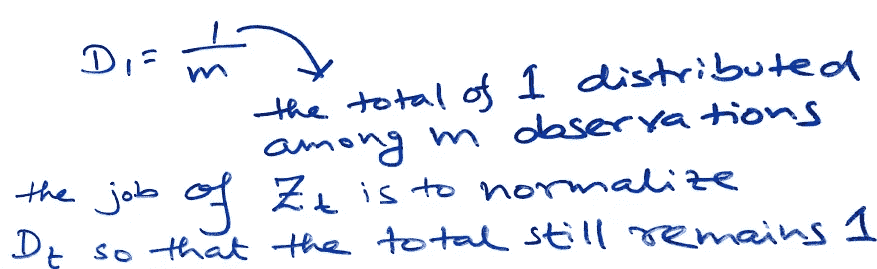 D₁ = 1/m
the total of 1 distributed
among m observations
the job of Zₜ is to normalize
Dₜ so that the total still remains 1